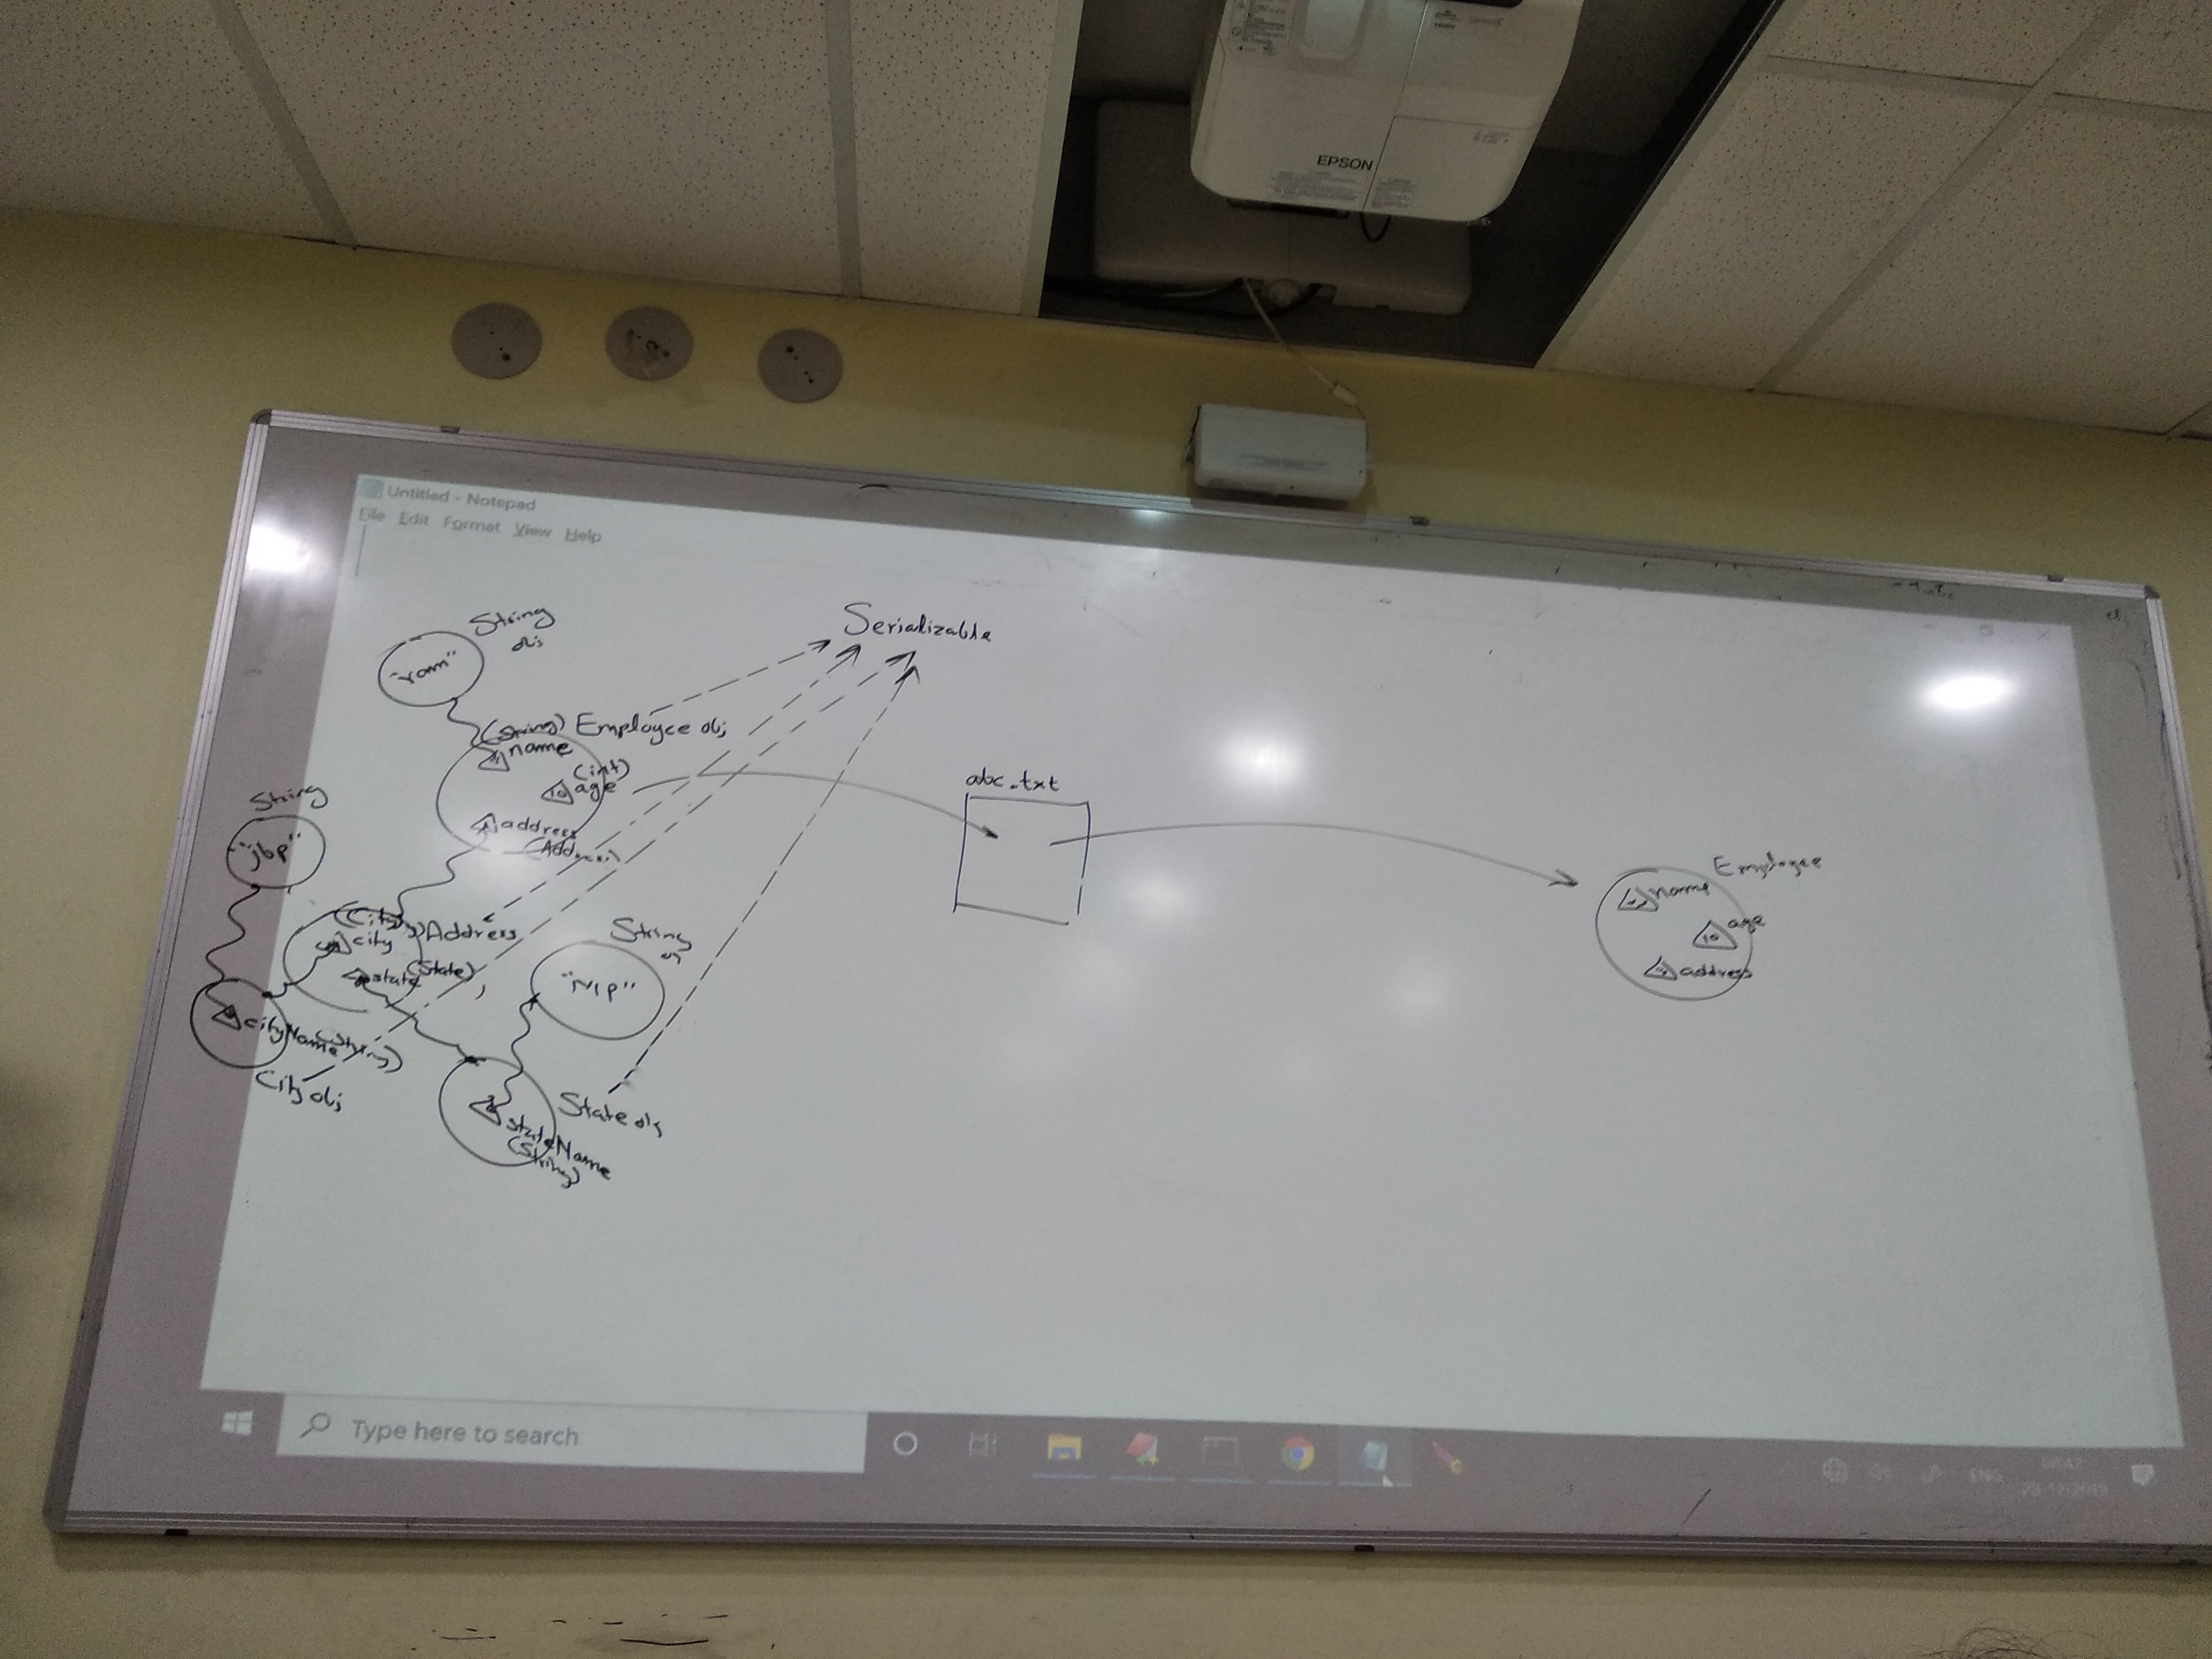 EPSON
Untitled - Notepad
File Edit Format View Help
Serializable
String
obj
"ram"
(String) Employee obj
name
(int)
age
10
address
(Address)
String
"jbp"
(City) Address
city
(State)
state
cityName
(String)
City obj
String
"MP"
State obj
stateName
(String)
abc.txt
Employee
name
age
10
address
Type here to search
ENG